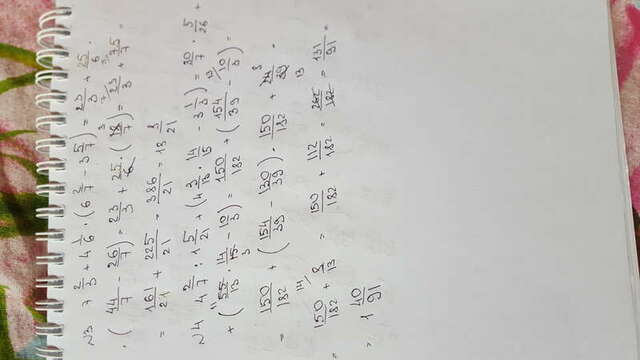 N3 7 2/3 + 4 1/6 · (6 2/7 - 3 5/7) = 23/3 + 25/6 ·
· (44/7 - 26/7) = 23/3 + 25/6 · (18/7) = 23/3 + 75/7 =
= 161/21 + 225/21 = 386/21 = 18 8/21
N4 4 2/7 : 1 5/21 + (4 3/13 · 14/15 - 3 1/3) = 30/7 · 5/26 +
+ (55/13 · 14/15 - 10/3) = 150/182 + (154/39 - 10/3) =
= 150/182 + (154/39 - 130/39) · 150/182 + 24/39 =
= 150/182 + 8/13 = 150/182 + 112/182 = 262/182 = 131/91 =
= 1 40/91